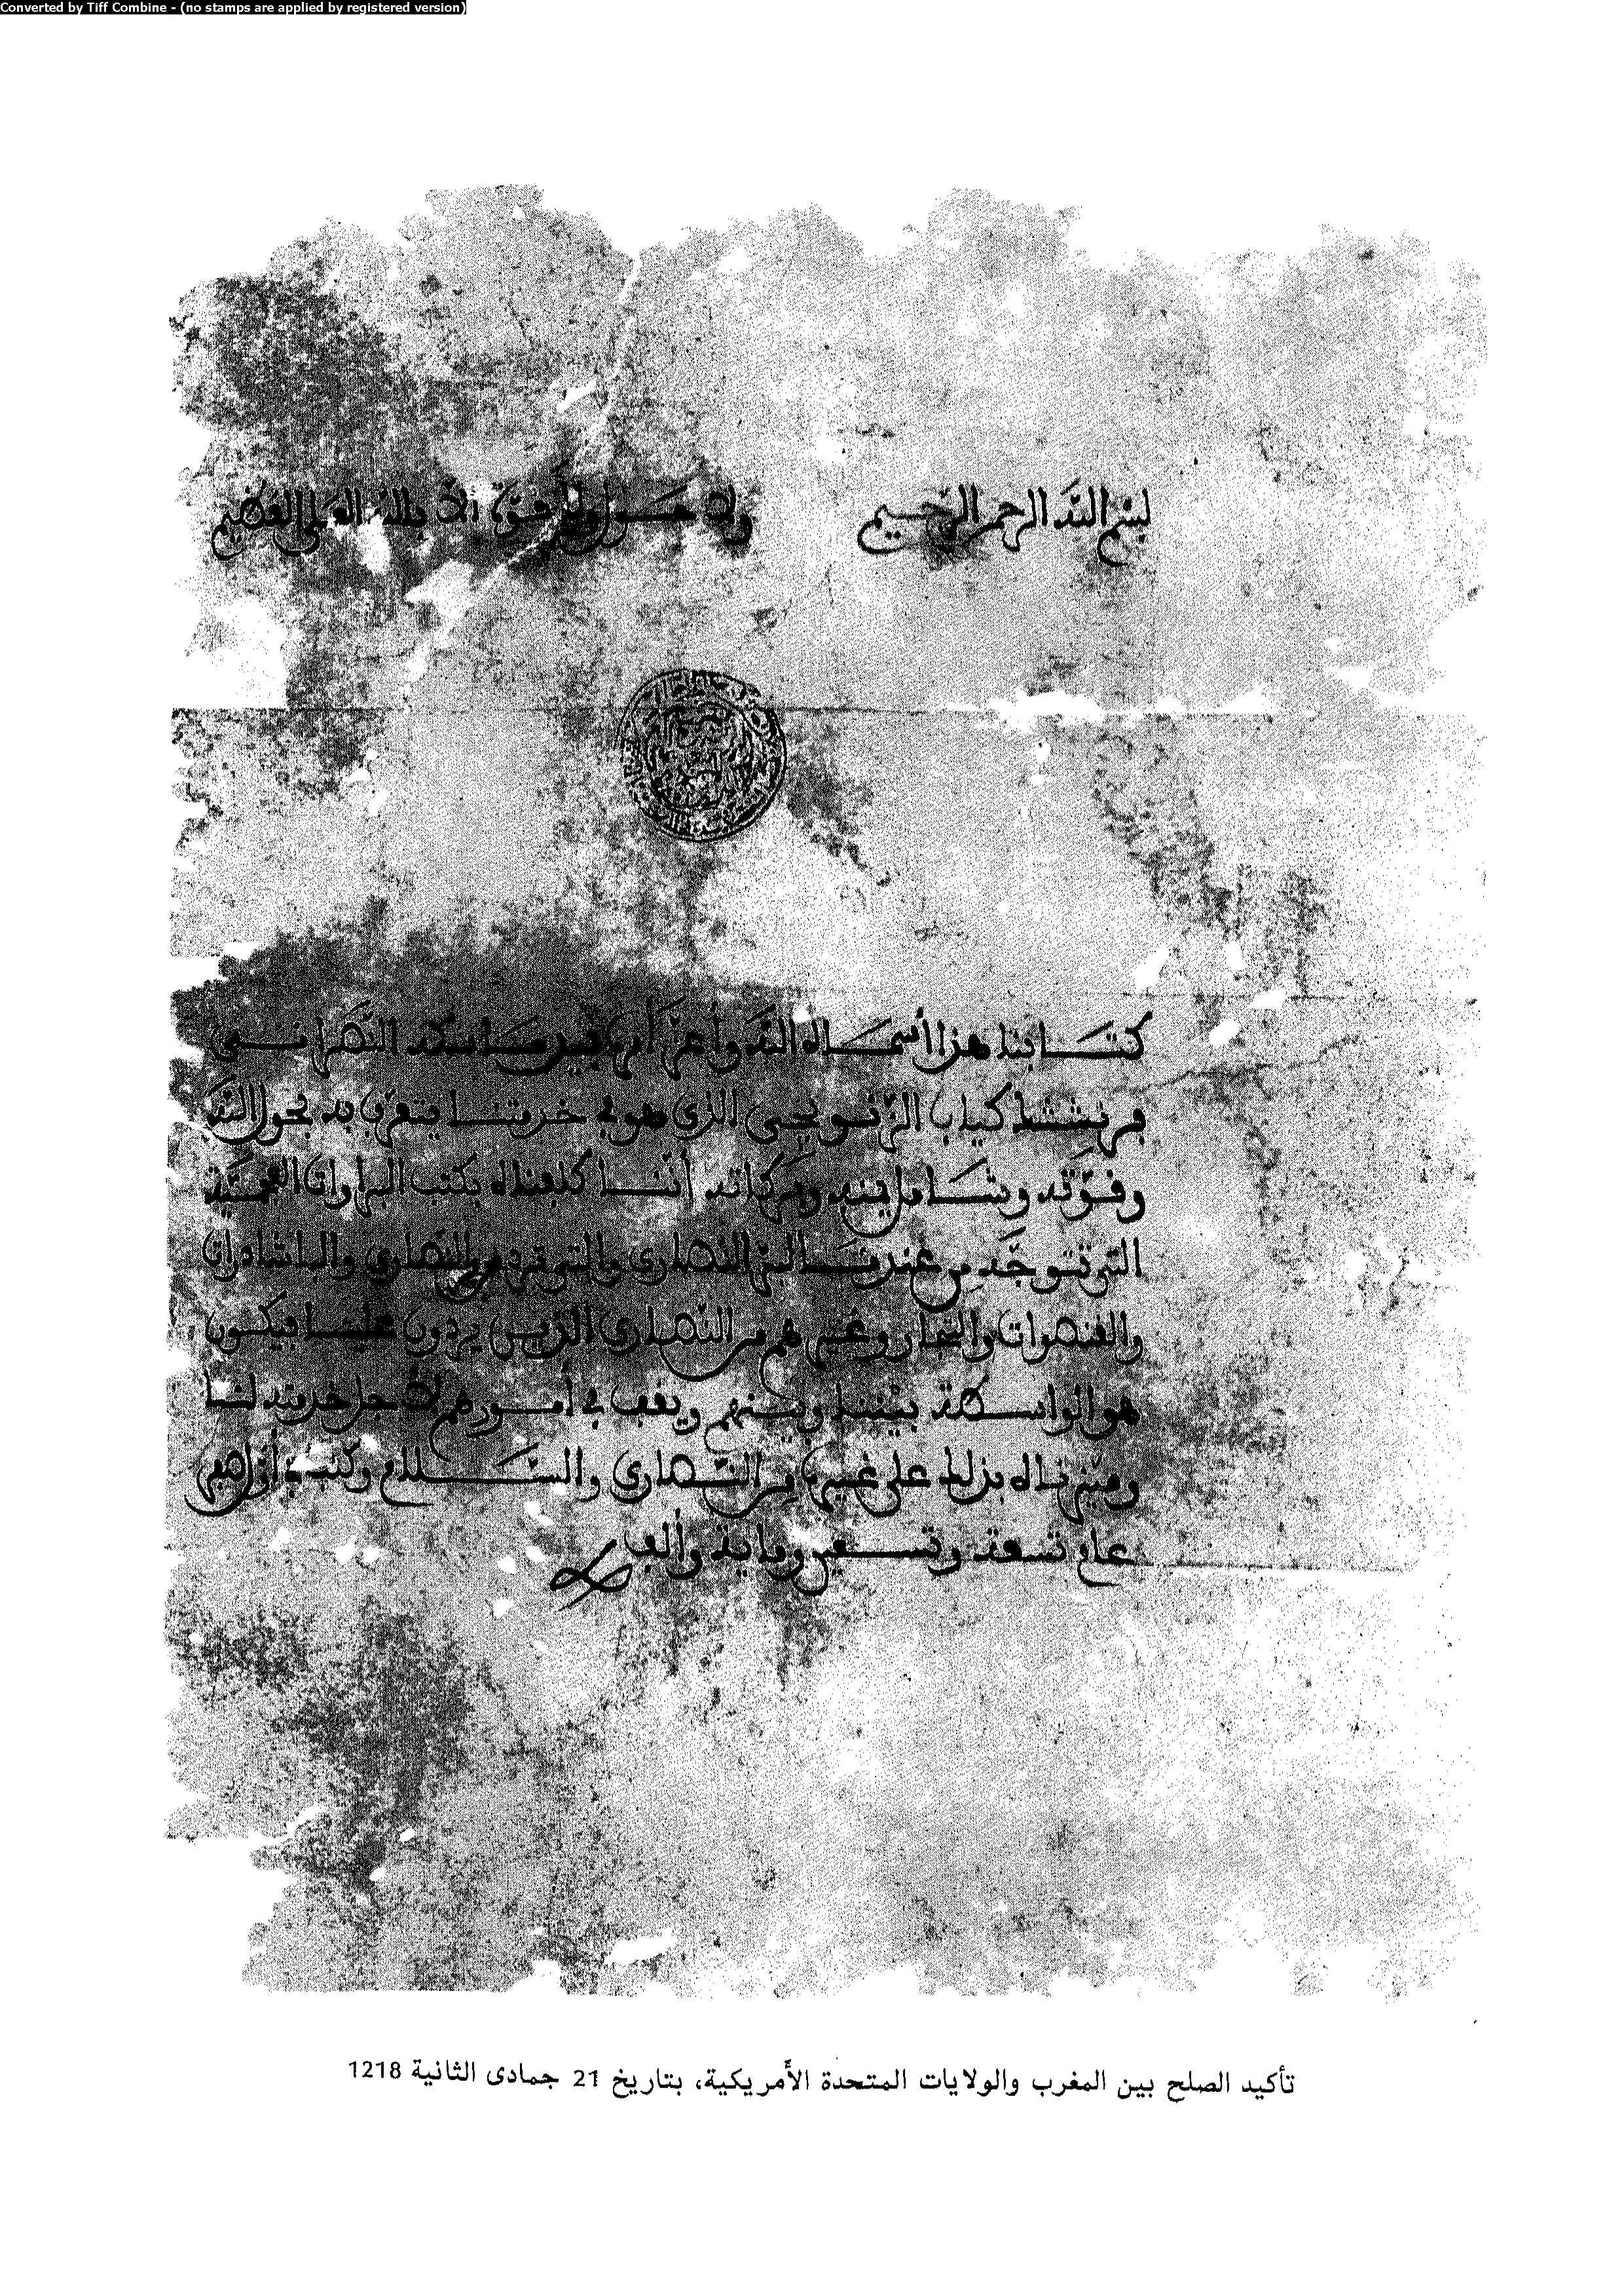 Converted by Tiff Combine - (no stamps are applied by registered version)
بسم الله الرحمن الرحيم ولا حول ولا قوة الا بالله العلي العظيم
كتابنا هذا أسماه الله وأعز أمره بيد ماسكه النصراني
فرنششك الذي هو في خدمتنا يتعرف به بحول الله
وقوته وشامل يمنه وبركاته أننا كلفناه بكتب البراوات العجمية
التي تتوجه من عندنا لبر النصارى والتي ترد من النصارى والباشادرات
والقنصوات والتجار وغيرهم من النصارى الذين يردون علينا فيكون
هو الواسطة بيننا وبينهم ويقف في أمورهم لأجل خدمته لنا
وميزناه بذلك على غيره من النصارى والسلام وكتب في
عام تسعة وتسعين وماية وألف
تأكيد الصلح بين المغرب والولايات المتحدة الأمريكية، بتاريخ 21 جمادى الثانية 1218